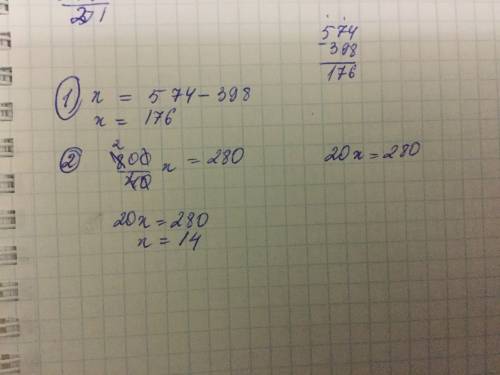 574
- 398
176
1 x = 574 - 398
x = 176
2 800/40 x = 280
20x = 280
20x = 280
x = 14